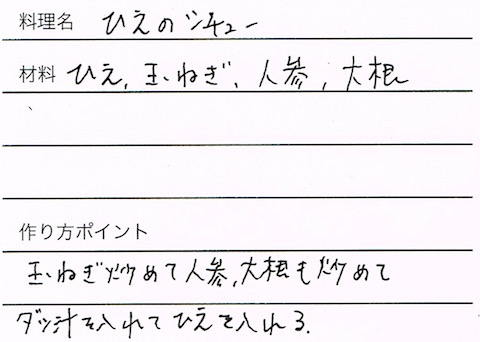 料理名 ひえのシチュー
材料 ひえ、玉ねぎ、人参、大根
作り方ポイント
玉ねぎ炒めて人参、大根も炒めて
ダシ汁を入れてひえを入れる.